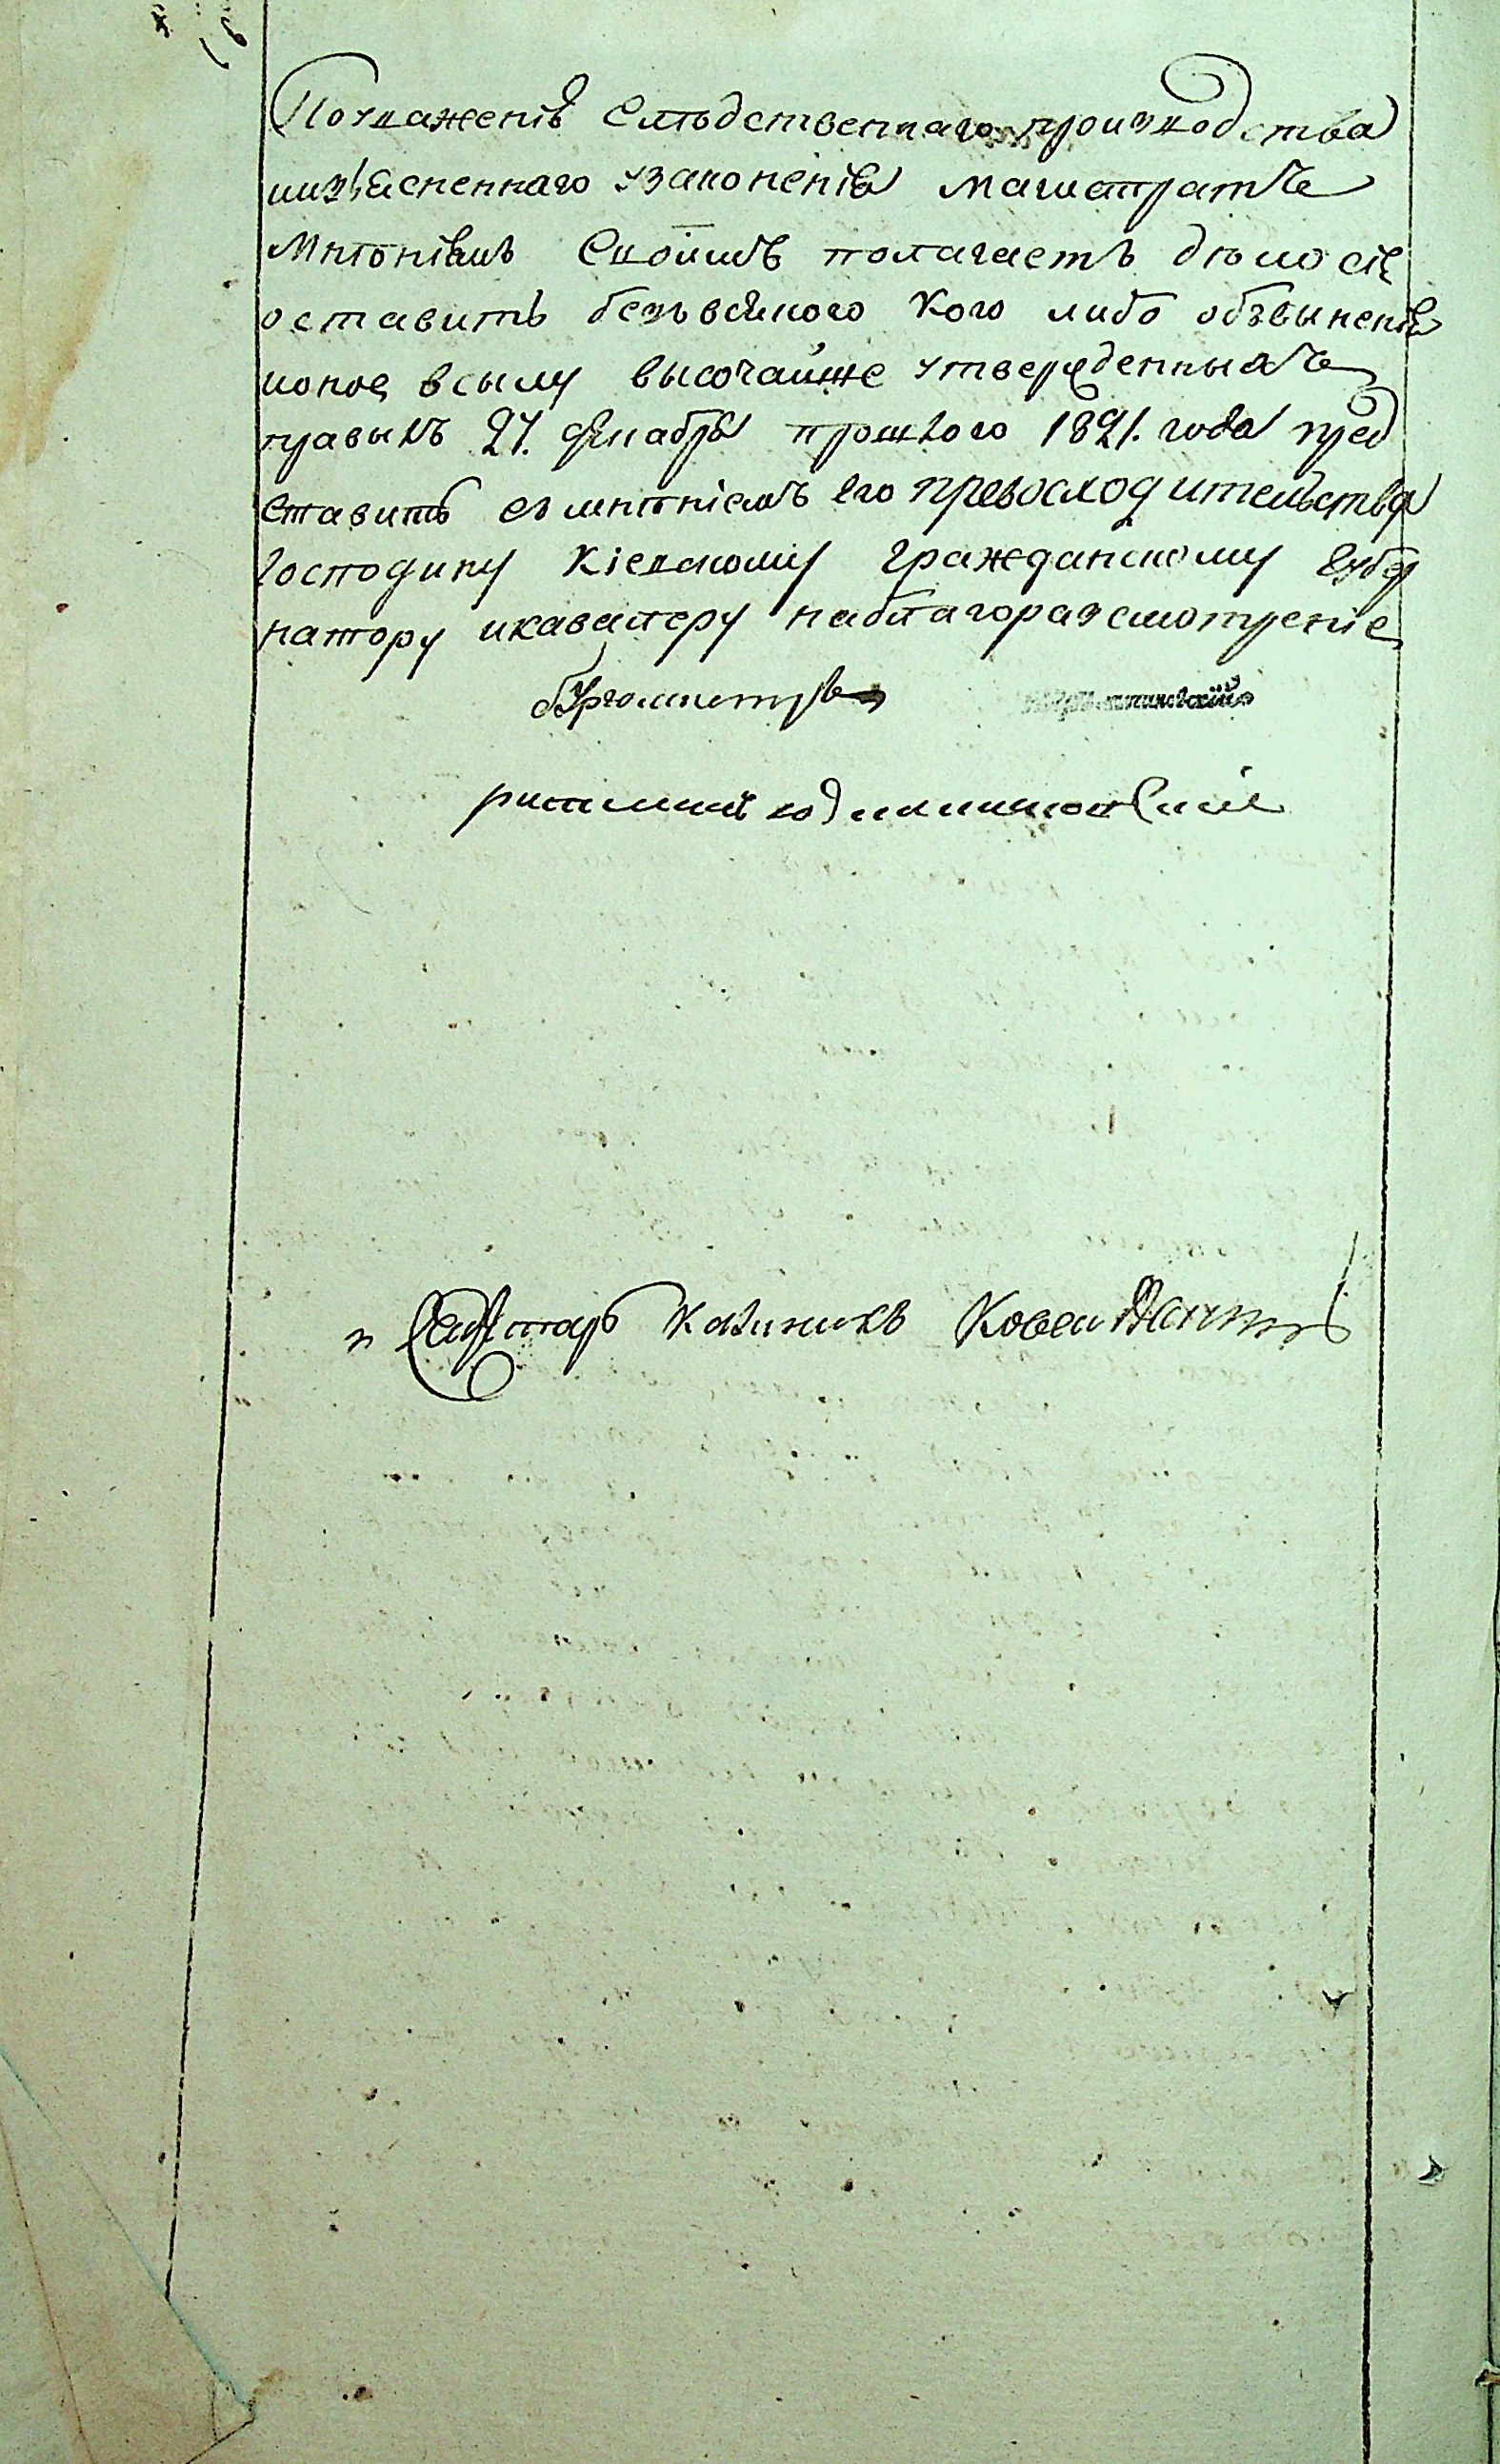 Поуваженія Слѣдственнаго производства
иизъясненнаго узаконенія магистратъ
Мнѣніемъ Своимъ полагаетъ дѣло сіе
оставить безъ всякого Кого либо объвыненія
ионое всылу высочайше утвержденныхъ
правылъ 27. декабря прошлого 1821. года пред
ставить съ мнѣніемъ его превосходительства
господину Кіевскому гражданскому губер
натору икавалеру наблагоразсмотреніе
бургомистръ
ратманъ
Секретарь Калиникъ